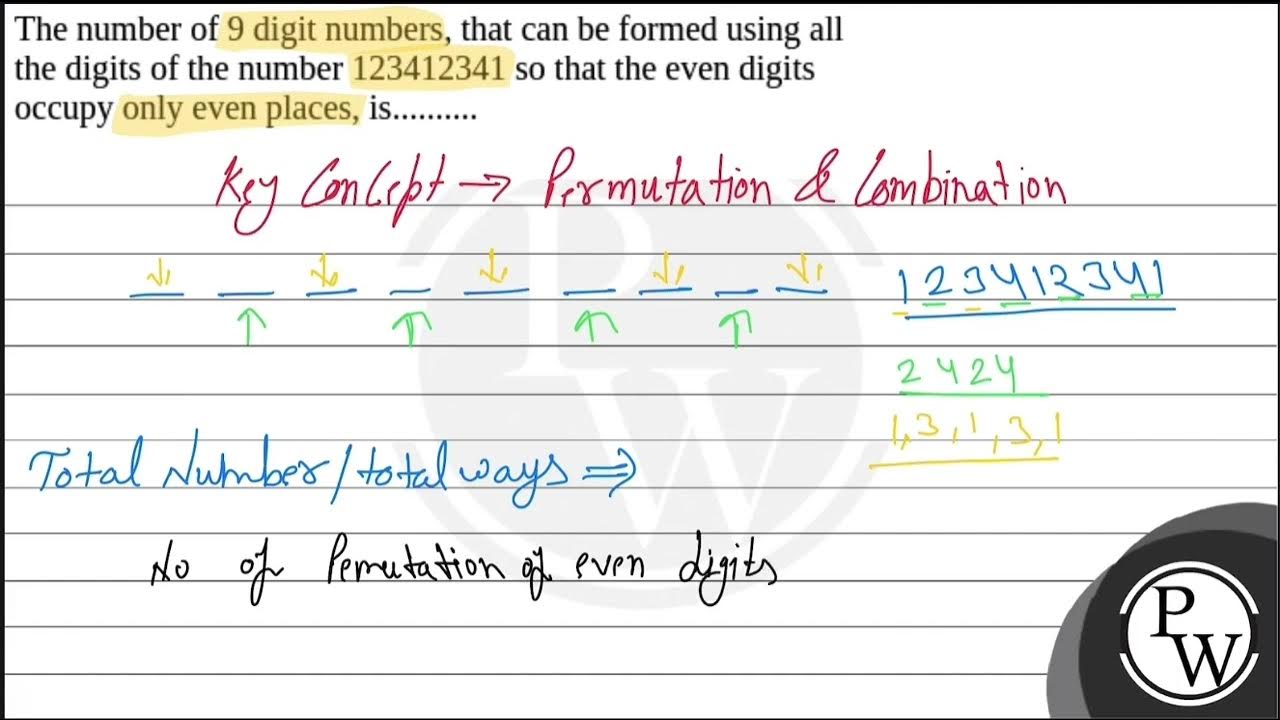 The number of 9 digit numbers, that can be formed using all
the digits of the number 123412341 so that the even digits
occupy only even places, is..........
Key Concept → Permutation & Combination
123412341
2 4 2 4
1, 3, 1, 3, 1
Total Number/total ways ⇒
No of Permutation of even digits
PW
PW